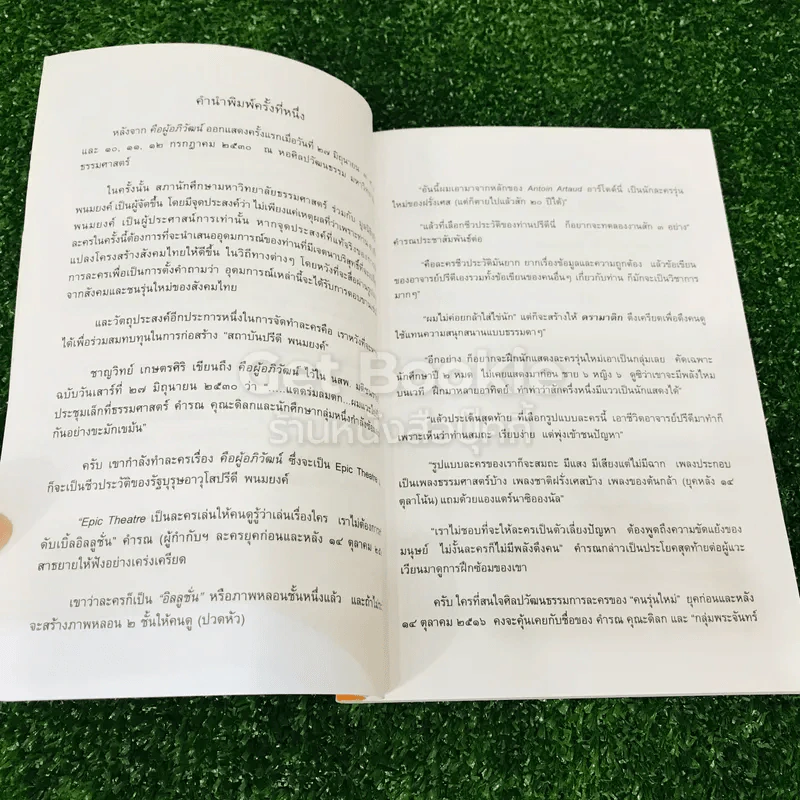 คำนำพิมพ์ครั้งที่หนึ่ง
หลังจาก คือผู้อภิวัฒน์ ออกแสดงครั้งแรกเมื่อวันที่ ๒๗ มิถุนายน
และ ๑๐, ๑๑, ๑๒ กรกฎาคม ๒๕๓๐ ณ หอศิลปวัฒนธรรม
ธรรมศาสตร์
ในครั้งนั้น สภานักศึกษามหาวิทยาลัยธรรมศาสตร์ ร่วมกับ
พนมยงค์ เป็นผู้จัดขึ้น โดยมีจุดประสงค์ว่า ไม่เพียงแค่เหตุผลที่ว่าเพราะท่าน
พนมยงค์ เป็นผู้ประศาสน์การเท่านั้น หากจุดประสงค์ที่แท้จริงของ
ละครในครั้งนี้ต้องการที่จะนำเสนออุดมการณ์ของท่านที่มีเจตนาบริสุทธิ์ที่จะ
แปลงโครงสร้างสังคมไทยให้ดีขึ้น ในวิถีทางต่างๆ โดยหวังที่จะสื่อผ่าน
การละครเพื่อเป็นการตั้งคำถามว่า อุดมการณ์เหล่านี้จะได้รับการตอบ
จากสังคมและชนรุ่นใหม่ของสังคมไทย
และวัตถุประสงค์อีกประการหนึ่งในการจัดทำละครคือ เราหวังที่จะ
ได้เพื่อร่วมสมทบทุนในการก่อสร้าง "สถาบันปรีดี พนมยงค์"
ชาญวิทย์ เกษตรศิริ เขียนถึง คือผู้อภิวัฒน์ ไว้ใน นสพ. มติชน
ฉบับวันเสาร์ที่ ๒๗ มิถุนายน ๒๕๓๐ ว่า "......แดดร่มลมตก...ผม
ประชุมเล็กที่ธรรมศาสตร์ คำรณ คุณะดิลกและนักศึกษากลุ่มหนึ่งกำลังซ้อม
กันอย่างขะมักเขม้น"
ครับ เขากำลังทำละครเรื่อง คือผู้อภิวัฒน์ ซึ่งจะเป็น Epic Theatre
ก็จะเป็นชีวประวัติของรัฐบุรุษอาวุโสปรีดี พนมยงค์
"Epic Theatre เป็นละครเล่นให้คนดูรู้ว่าเล่นเรื่องใคร เราไม่ต้องการ
ดับเบิ้ลอิลลูชั่น" คำรณ (ผู้กำกับฯ ละครยุคก่อนและหลัง ๑๔ ตุลาคม
สาธยายให้ฟังอย่างเคร่งเครียด
เขาว่าละครก็เป็น "อิลลูชั่น" หรือภาพหลอนชั้นหนึ่งแล้ว และถ้า
จะสร้างภาพหลอน ๒ ชั้นให้คนดู (ปวดหัว)
"อันนี้ผมเอามาจากหลักของ Antoin Artaud อาร์โตด์นี่ เป็นนักละครรุ่น
ใหม่ของฝรั่งเศส (แต่ก็ตายไปแล้วสัก ๒๐ ปีได้)"
"แล้วที่เลือกชีวประวัติของท่านปรีดีนี่ ก็อยากจะทดลองงานสัก ๓ อย่าง"
คำรณประชาสัมพันธ์ต่อ
"คือละครชีวประวัติมันยาก ยากเรื่องข้อมูลและความถูกต้อง แล้วข้อเขียน
ของอาจารย์ปรีดีเองรวมทั้งข้อเขียนของคนอื่นๆ เกี่ยวกับท่าน ก็มักจะเป็นวิชาการ
มากๆ"
"ผมไม่ค่อยกล้าใส่ไข่นัก" แต่ก็จะสร้างให้ ดรามาติก ตึงเครียดเพื่อดึงคนดู
ใช้แทนความสนุกสนานแบบธรรมดาๆ"
"อีกอย่าง ก็อยากจะฝึกนักแสดงละครรุ่นใหม่เอาเป็นกลุ่มเลย คัดเฉพาะ
นักศึกษาปี ๒ หมด ไม่เคยแสดงมาก่อน ชาย ๖ หญิง ๖ ดูซิว่าเขาจะมีพลังไหม
บนเวที ฝึกมาหลายอาทิตย์ ท่าทางว่าสักครึ่งหนึ่งมีแววเป็นนักแสดงได้"
"แล้วประเด็นสุดท้าย ที่เลือกรูปแบบละครนี้ เอาชีวิตอาจารย์ปรีดีมาทำก็
เพราะเห็นว่าท่านสมถะ เรียบง่าย แต่พุ่งเข้าชนปัญหา"
"รูปแบบละครของเราก็จะสมถะ มีแสง มีเสียงแต่ไม่มีฉาก เพลงประกอบ
เป็นเพลงธรรมศาสตร์บ้าง เพลงชาติฝรั่งเศสบ้าง เพลงของต้นกล้า (ยุคหลัง ๑๔
ตุลาโน้น) แถมด้วยแองแตร์นาซิอองนัล"
"เราไม่ชอบที่จะให้ละครเป็นตัวเลี่ยงปัญหา ต้องพูดถึงความขัดแย้งของ
มนุษย์ ไม่งั้นละครก็ไม่มีพลังดึงคน" คำรณกล่าวเป็นประโยคสุดท้ายต่อผู้แวะ
เวียนมาดูการฝึกซ้อมของเขา
ครับ ใครที่สนใจศิลปวัฒนธรรมการละครของ "คนรุ่นใหม่" ยุคก่อนและหลัง
๑๔ ตุลาคม ๒๕๑๖ คงจะคุ้นเคยกับชื่อของ คำรณ คุณะดิลก และ "กลุ่มพระจันทร์
Get Bookie
ร้านหนังสือบุ๊คกี้